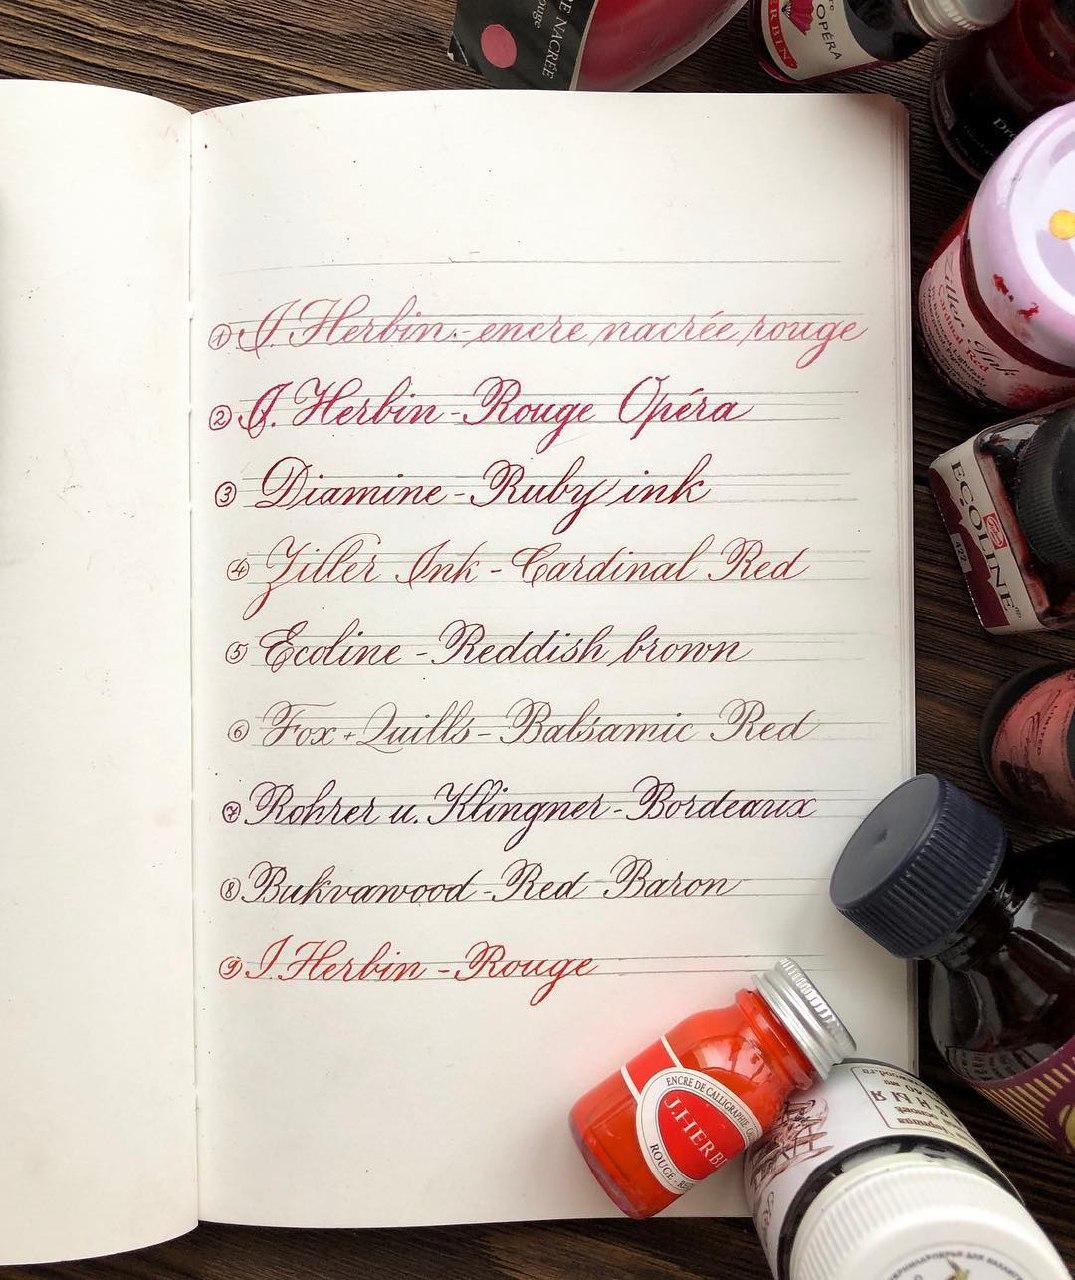 E NACRÉE
ouge
OPÉRA
① J. Herbin - encre nacrée rouge
② J. Herbin - Rouge Opéra
③ Diamine - Ruby ink
④ Ziller Ink - Cardinal Red
⑤ Ecoline - Reddish brown
⑥ Fox + Quills - Balsamic Red
⑦ Rohrer u. Klingner - Bordeaux
⑧ Bukvawood - Red Baron
⑨ J. Herbin - Rouge
Cardinal Red
ECOLINE
422
ENCRE DE CALLIGRAPHIE
J. HERBI
ROUGE - RE